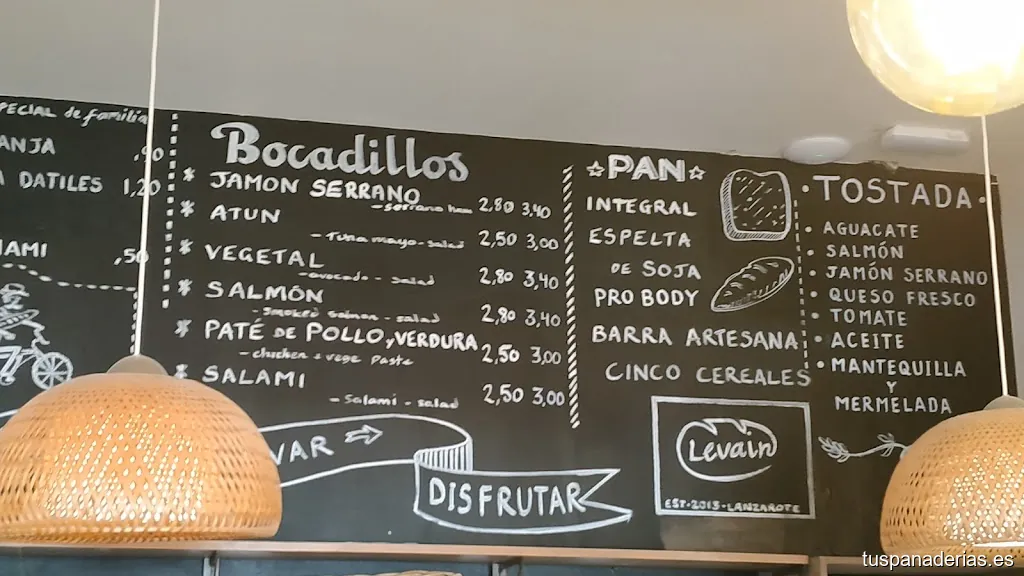 ESPECIAL de familia
ANJA ,90
A DATILES 1,20
AMI ,50
Bocadillos
* JAMON SERRANO
- serrano ham 2.80 3,40
* ATUN
- Tuna mayo - salad 2,50 3,00
* VEGETAL
- avocado - salad 2,80 3,40
* SALMÓN
- smoked salmon - salad 2,80 3,40
* PATÉ DE POLLO, VERDURA
- chicken & vege paste 2,50 3,00
* SALAMI
- Salami - salad 2,50 3,00
VAR
DISFRUTAR
☆PAN☆
INTEGRAL
ESPELTA
DE SOJA
PRO BODY
BARRA ARTESANA
CINCO CEREALES
Levain
EST-2013-LANZAROTE
• TOSTADA •
• AGUACATE
• SALMÓN
• JAMÓN SERRANO
• QUESO FRESCO
• TOMATE
• ACEITE
• MANTEQUILLA
Y
MERMELADA
tuspanaderias.es